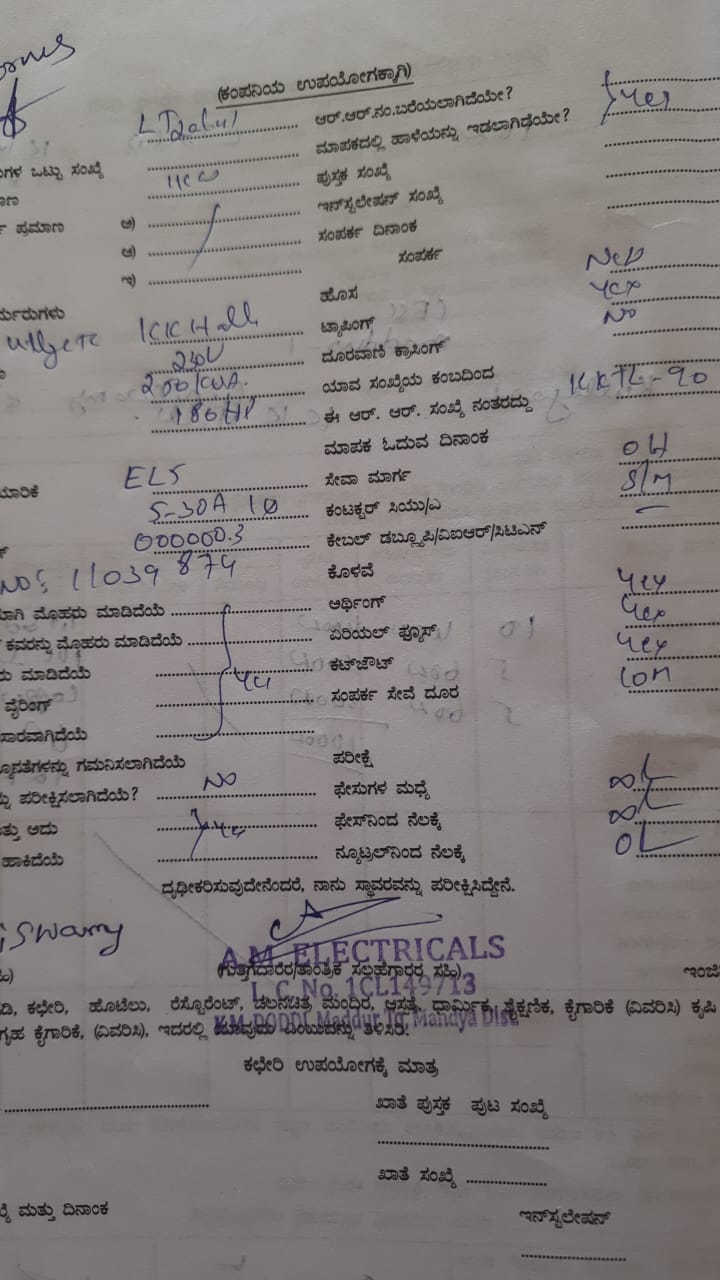 (ಕಂಪನಿಯ ಉಪಯೋಗಕ್ಕಾಗಿ)
ಆರ್.ಆರ್.ನಂ.ಬರೆಯಲಾಗಿದೆಯೇ? Yes
ಗಳ ಒಟ್ಟು ಸಂಖ್ಯೆ ಮಾಪಕದಲ್ಲಿ ಹಾಳೆಯನ್ನು ಇಡಲಾಗಿದೆಯೇ?
1KW ಪುಸ್ತಕ ಸಂಖ್ಯೆ
ಪ್ರಮಾಣ ಅ) ಇನ್‌ಸ್ಟಲೇಷನ್ ಸಂಖ್ಯೆ
ಆ) ಸಂಪರ್ಕ ದಿನಾಂಕ
ಇ) ಸಂಪರ್ಕ
ಹೊಸ New
KKHalli ಟ್ಯಾಪಿಂಗ್ Yes
230V ದೂರವಾಣಿ ಕ್ರಾಸಿಂಗ್ No
200KVA. ಯಾವ ಸಂಖ್ಯೆಯ ಕಂಬದಿಂದ
180HP ಈ ಆರ್. ಆರ್. ಸಂಖ್ಯೆ ನಂತರದ್ದು KKTL-90
ಮಾಪಕ ಓದುವ ದಿನಾಂಕ
ELS ಸೇವಾ ಮಾರ್ಗ OH
5-30A 1Ø ಕಂಟಕ್ಟರ್ ಸಿಯು/ಎ S/M
000000.3 ಕೇಬಲ್ ಡಬ್ಲ್ಯೂಪಿ/ವಿಐಆರ್/ಸಿಟಿಎನ್ –
NO: 11039874 ಕೊಳವೆ
ಮೊಹರು ಮಾಡಿದೆಯೆ ಅರ್ಥಿಂಗ್ Yes
ಕವರನ್ನು ಮೊಹರು ಮಾಡಿದೆಯೆ ಏರಿಯಲ್ ಫ್ಯೂಸ್ Yes
ಮಾಡಿದೆಯೆ ಕಟ್‌ಔಟ್ Yes
ವೈರಿಂಗ್ ಸಂಪರ್ಕ ಸೇವೆ ದೂರ 10M
ಸಾರವಾಗಿದೆಯೆ
ಗಮನಿಸಲಾಗಿದೆಯೆ ಪರೀಕ್ಷೆ
ಪರೀಕ್ಷಿಸಲಾಗಿದೆಯೆ? NO ಫೇಸುಗಳ ಮಧ್ಯೆ
ಅದು ಫೇಸ್‌ನಿಂದ ನೆಲಕ್ಕೆ
ಹಾಕಿದೆಯೆ ನ್ಯೂಟ್ರಲ್‌ನಿಂದ ನೆಲಕ್ಕೆ
ದೃಢೀಕರಿಸುವುದೇನೆಂದರೆ, ನಾನು ಸ್ಥಾವರವನ್ನು ಪರೀಕ್ಷಿಸಿದ್ದೇನೆ.
A.M. ELECTRICALS
(ಗುತ್ತಿಗೆದಾರರ/ತಾಂತ್ರಿಕ ಸಲಹೆಗಾರರ ಸಹಿ)
L.C.No. 1CL149713
ಕಛೇರಿ, ಹೊಟೆಲು, ರೆಸ್ಟೋರೆಂಟ್, ಚಲನಚಿತ್ರ ಮಂದಿರ, ಆಸ್ಪತ್ರೆ, ಧಾರ್ಮಿಕ, ಶೈಕ್ಷಣಿಕ, ಕೈಗಾರಿಕೆ (ವಿವರಿಸಿ) ಕೃಷಿ
K.M.DODDI Maddur Tq Mandya Dist
ಗೃಹ ಕೈಗಾರಿಕೆ, (ವಿವರಿಸಿ), ಇದರಲ್ಲಿ ಯಾವುದು ಎಂಬುದನ್ನು ತಿಳಿಸಿರಿ.
ಕಛೇರಿ ಉಪಯೋಗಕ್ಕೆ ಮಾತ್ರ
ಖಾತೆ ಪುಸ್ತಕ ಪುಟ ಸಂಖ್ಯೆ
ಖಾತೆ ಸಂಖ್ಯೆ
ಮತ್ತು ದಿನಾಂಕ ಇನ್‌ಸ್ಟಲೇಷನ್